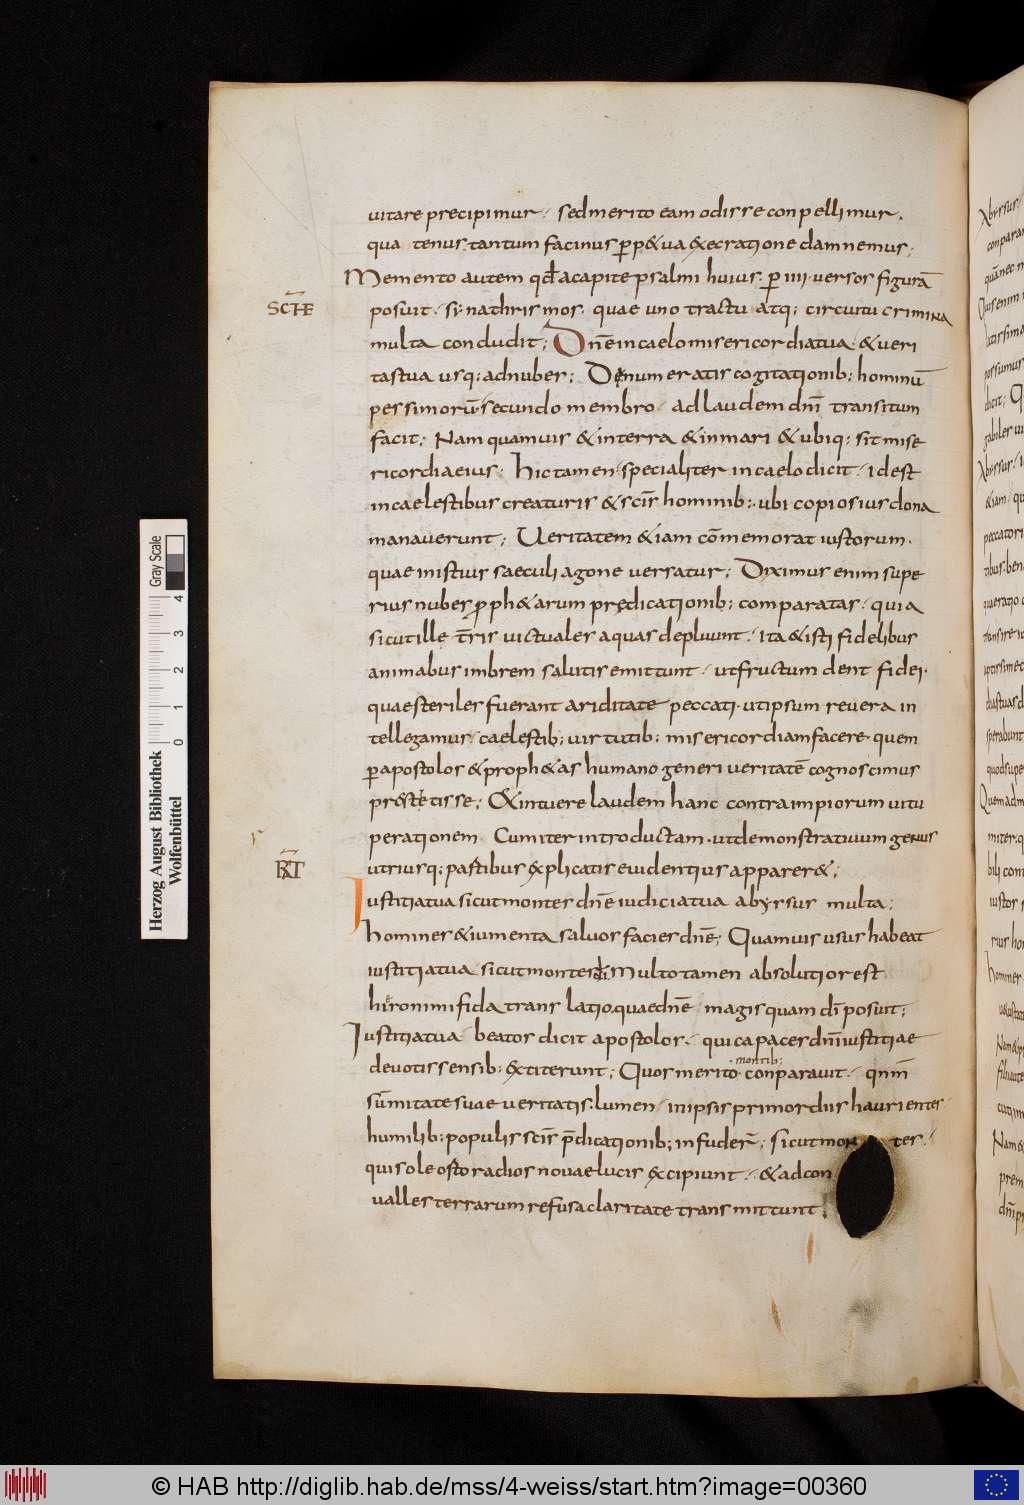 uitare precipimur · sed merito eam odisse conpellimur ·
qua tenus tantum facinus ꝑp&ua execratione damnemus ;
Memento autem qđ a capite psalmi huius · ꝑ IIII · uersos figurā
SCHE
posuit · synathrismos · quae uno tractu atq; circuitu crimina
multa concludit ; Dn̄e in caelo misericordia tua · & ueri
tas tua usq; ad nubes ; Denumeratis cogitationib; hominū
pessimorū · secundo membro · ad laudem dn̄i transitum
facit ; Nam quamuis & in terra & in mari & ubiq; sit mise
ricordia eius ; hic tamen specialiter in caelo dicit · id est
in caelestibus creaturis & scīs hominib; · ubi copiosius dona
manauerunt ; Ueritatem &iam cōmemorat iustorum ·
quae in istius saeculi agone uersatur ; Diximus enim supe
rius nubes ꝓph&arum prędicationib; comparatas · quia
sicut ille t̄ris uictuales aquas depluunt · ita & isti fidelibus
animabus imbrem salutis emittunt · ut fructum dent fidei ·
quae steriles fuerant ariditate peccati · ut ipsum reuera in
tellegamus caelestib; uirtutib; misericordiam facere · quem
ꝑ apostolos & proph&as humano generi ueritatē cognoscimus
pr&stetisse ; Et intuere laudem hanc contra impiorum uitu
perationem · Cum iter introductam · ut demonstratiuum genus
utriusq; partibus explicatis euidentius apparer& ;
Iustitia tua sicut montes dn̄e iudicia tua abyssus multa ;
homines & iumenta saluos facies dn̄e ; Quamuis usus habeat
iustitia tua sicut montes dī · Multo tamen absolutior est
hieronimi fida translatio quae dn̄e magis quam dī posuit ;
Iustitia tua beatos dicit apostolos · qui capaces dn̄i iustitiae
deuotis sensib; extiterunt ; Quos merito · montib; · conparauit · qn̄m
sūmitate suae ueritatis · lumen · in ipsis primordiis haurientes ·
humilib; populis scīs p̄dicationib; infuder̄ ; sicut montes ·
qui sole orto radios nouae lucis excipiunt · & ad con
ualles terrarum refusa claritate transmittunt ;
Herzog August Bibliothek
Wolfenbüttel
0 1 2 3 4
Gray Scale
© HAB http://diglib.hab.de/mss/4-weiss/start.htm?image=00360